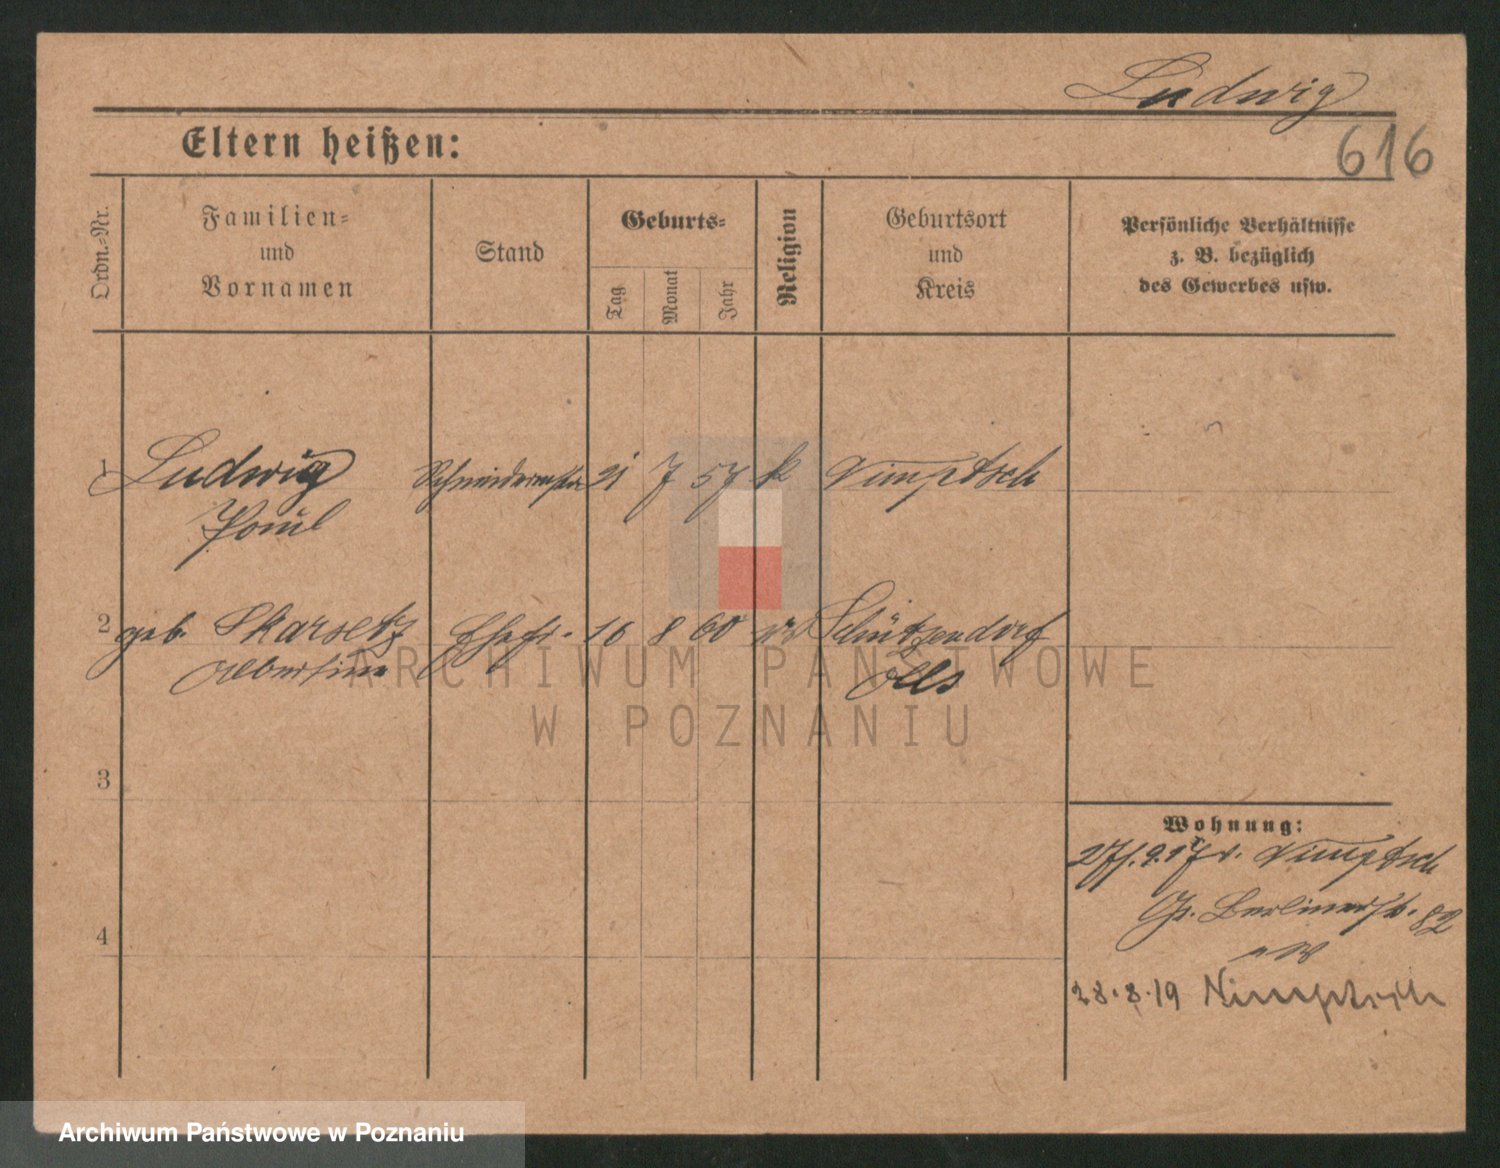 Ludwig
616
Eltern heißen:
Ordn.-Nr.
Familien-
und
Vornamen
Stand
Geburts-
Tag
Monat
Jahr
Religion
Geburtsort
und
Kreis
Persönliche Verhältnisse
z. B. bezüglich
des Gewerbes usw.
1 Ludwig Schneidermstr 21 7 57 k Nimptsch
Paul
2 geb. Skarsetz Ehefr. 16 8 60 Schützendorf
Albertine Öls
3
4
Wohnung:
Nimptsch
Gr. Berlinerstr. 82
28.8.19 Nimptsch
ARCHIWUM PAŃSTWOWE
W POZNANIU
Archiwum Państwowe w Poznaniu